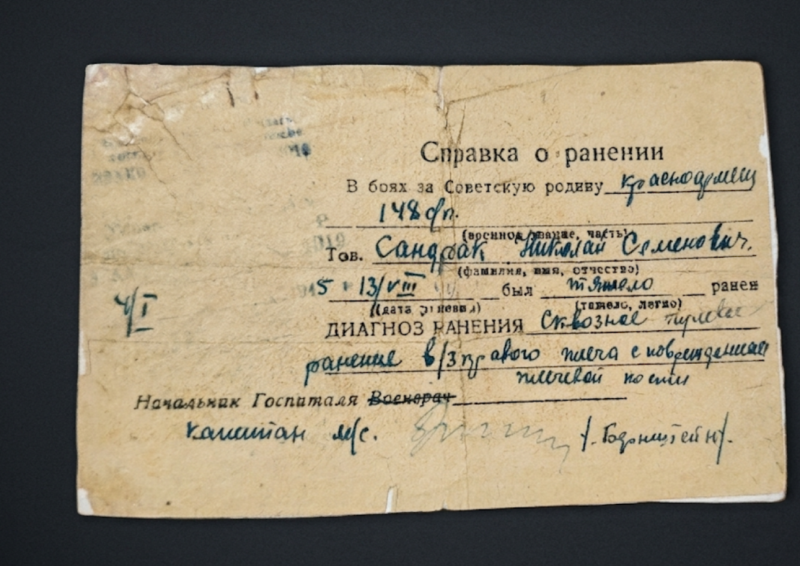 Справка о ранении
В боях за Советскую родину красноармеец
148 сп.
(военное звание, часть)
Тов. Сандрак Николай Семенович.
(фамилия, имя, отчество)
13/VIII был тяжело ранен
(дата ранения) (тяжело, легко)
ДИАГНОЗ РАНЕНИЯ Сквозное пулевое
ранение в/3 правого плеча с повреждением
плечевой кости
4/I
Начальник Госпиталя Военврач
капитан м/с. /. Боронштейн/.